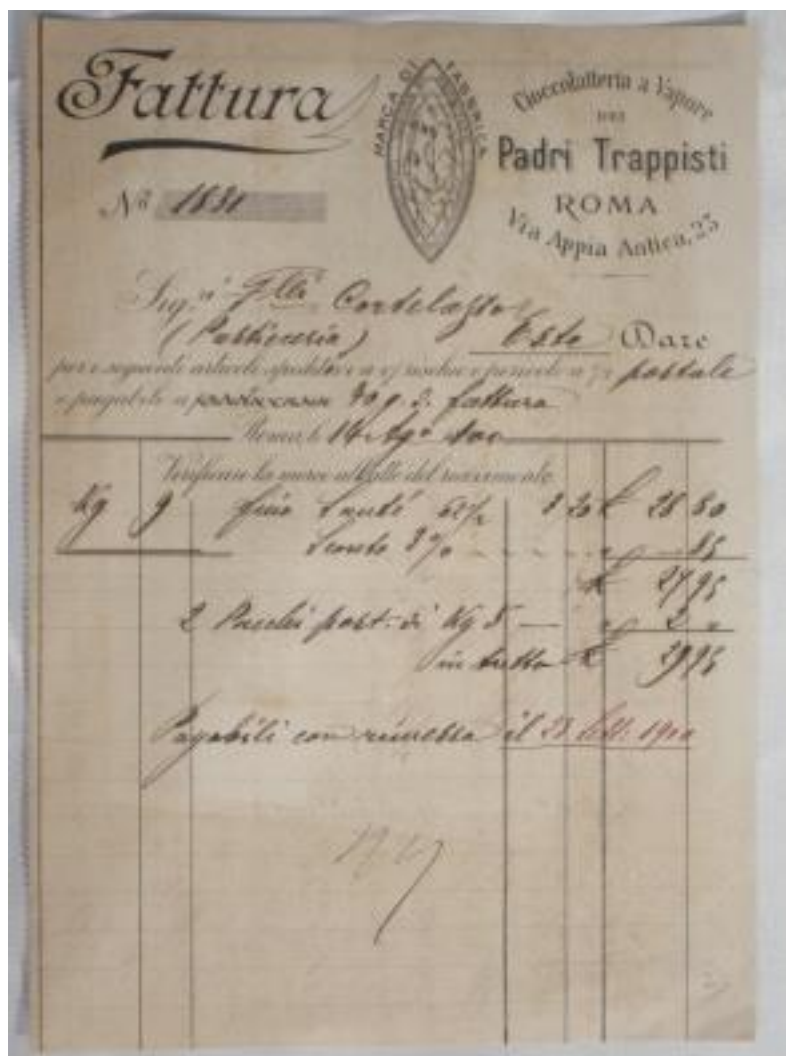 Fattura
MARCA DI FABBRICA
Cioccolatteria a Vapore
DEI
Padri Trappisti
ROMA
Via Appia Antica, 25
No 1881
Sig.ri Flli Cortelazzo
(Pasticceria) Este Dare
per i seguenti articoli spediti rischio e pericolo a postale
e pagabile a 30 g. d. fattura
Roma, li 14 Ago 900
Verificare la merce all'atto del ricevimento
Kg 9 fino Santé 3 20 £ 28 80
Sconto 3% 85
£ 27 95
2 Pacchi post. di Kg 5 2
in tutto £ 29 95
Pagabili con rimessa il 23 Sett. 1900